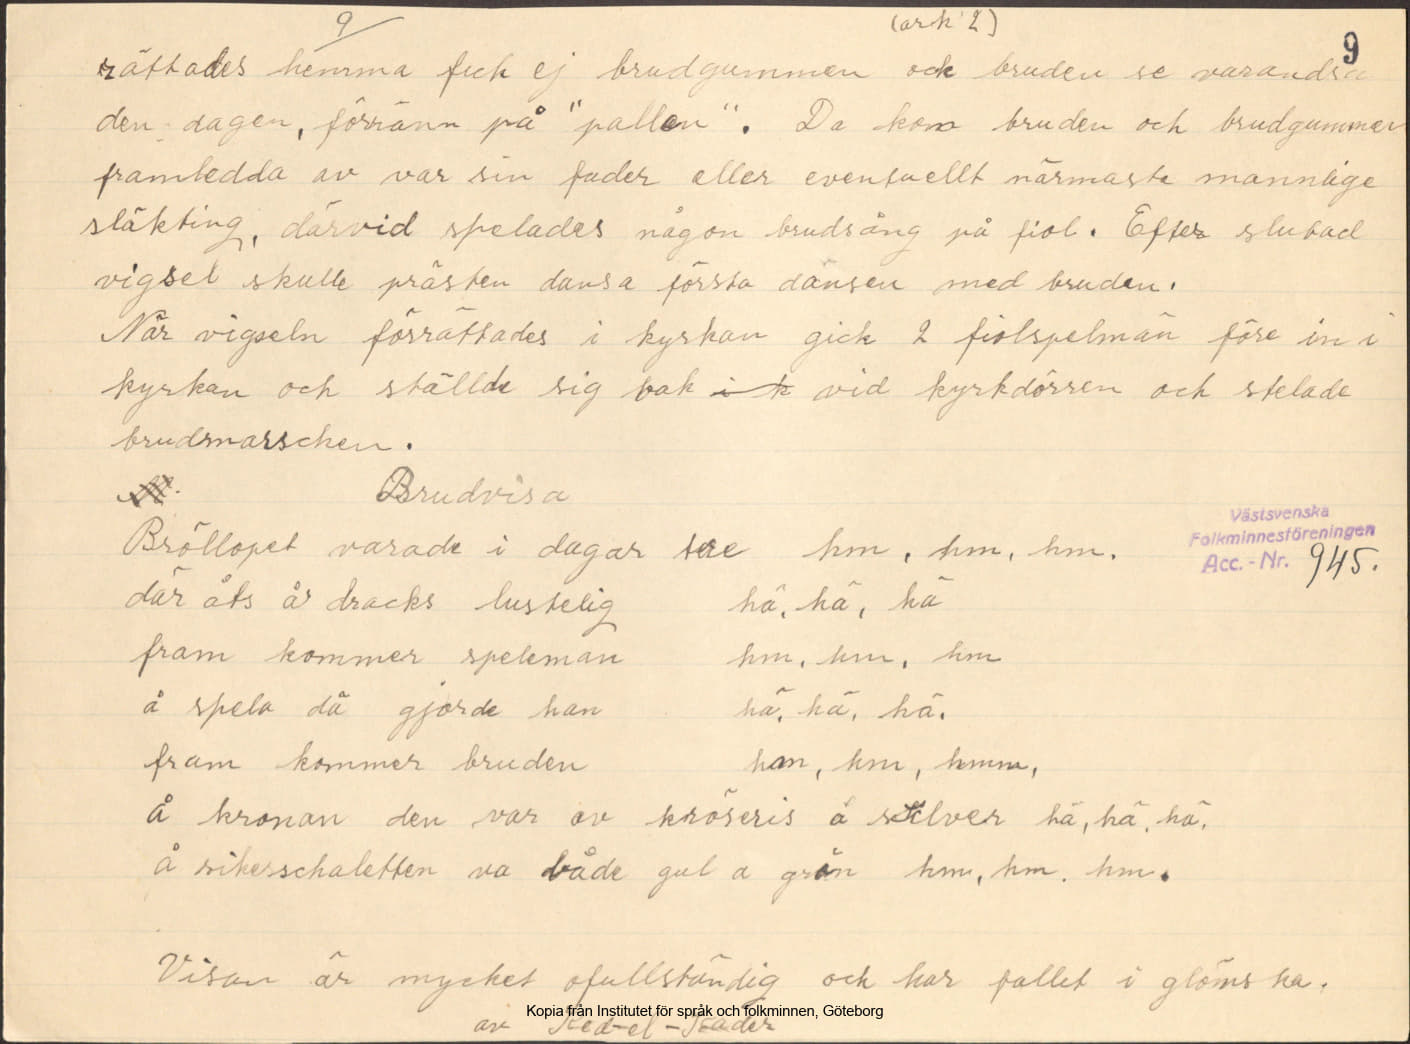 9 (ark 2)
9
rättades hemma fick ej brudgummen ock bruden se varandra
den dagen, förränn på "pallen". Da kom bruden och brudgummen
framledda av var sin fader eller eventuellt närmaste mannlige
släkting, därvid spelades någon brudsång på fiol. Efter slutad
vigsel skulle prästen dansa första dansen med bruden.
När vigseln förrättades i kyrkan gick 2 fiolspelmän före in i
kyrkan och ställde sig bak i k vid kyrkdörren och stelade
brudmarschen.
Brudvisa
Bröllopet varade i dagar tre hm, hm, hm.
där åts år dracks lustelig hä, hä, hä
fram kommer speleman hm, hm, hm
å spela då gjorde han hä, hä, hä.
fram kommer bruden hm, hm, hmm,
Å kronan den var av kröseris å silver hä, hä, hä.
Å sikerschaletten va både gul a grön hm, hm, hm.
Västsvenska
Folkminnesföreningen
Acc.-Nr. 945.
Visan är mycket ofullständig ock har fallet i glömska.
Kopia från Institutet för språk och folkminnen, Göteborg
av